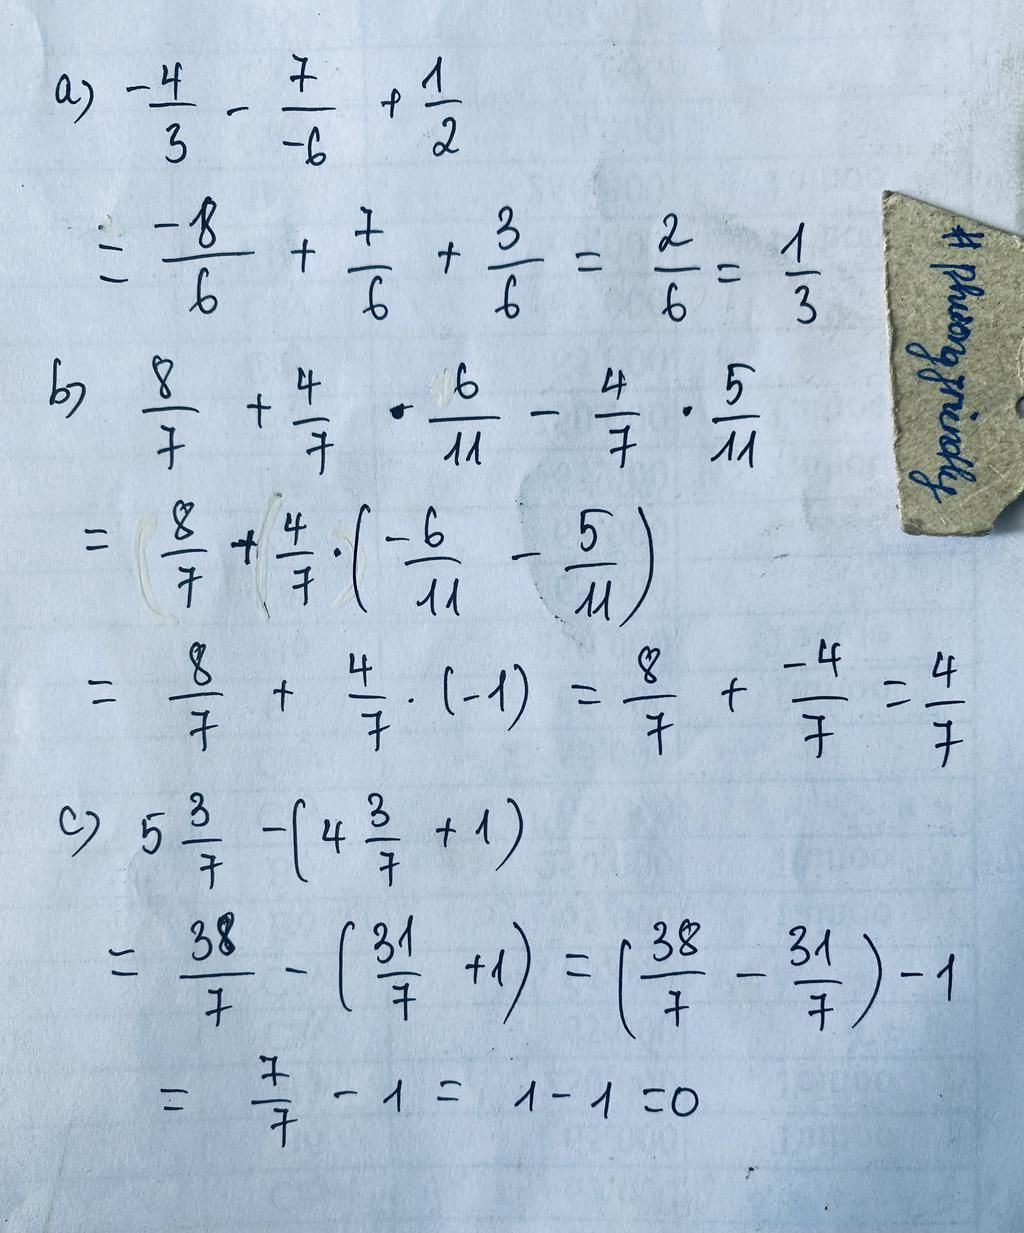 a) -4/3 - 7/-6 + 1/2
= -8/6 + 7/6 + 3/6 = 2/6 = 1/3
b) 8/7 + 4/7 · 6/11 - 4/7 · 5/11
= 8/7 + 4/7 · (-6/11 - 5/11)
= 8/7 + 4/7 . (-1) = 8/7 + -4/7 = 4/7
c) 5 3/7 - (4 3/7 + 1)
= 38/7 - (31/7 + 1) = (38/7 - 31/7) - 1
= 7/7 - 1 = 1 - 1 = 0
# phuongfriendly